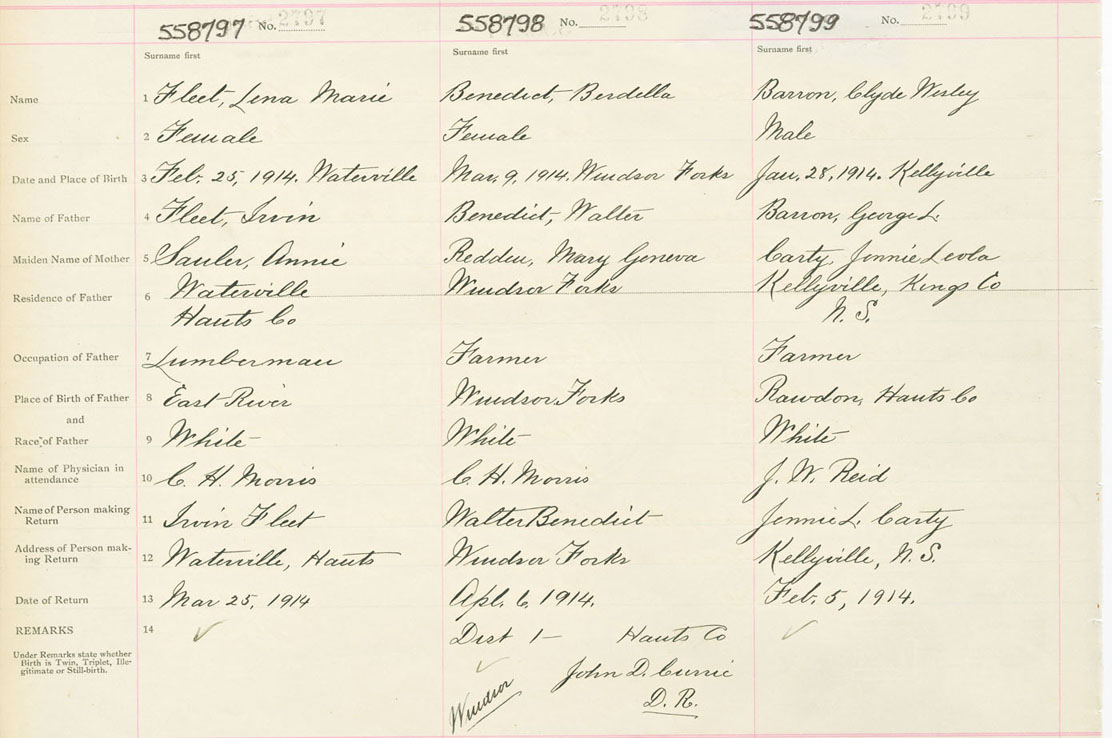 558797 No. 2797 558798 No. 2798 558799 No. 2799
Surname first Surname first Surname first
Name 1 Fleet, Lena Marie Benedict, Berdella Barron, Clyde Wesley
Sex 2 Female Female Male
Date and Place of Birth 3 Feb. 25, 1914. Waterville Mar. 9, 1914. Windsor Forks Jan. 28, 1914. Kellyville
Name of Father 4 Fleet, Irvin Benedict, Walter Barron, George L.
Maiden Name of Mother 5 Sauler, Annie Redden, Mary Geneva Carty, Jennie Leola
Residence of Father 6 Waterville Windsor Forks Kellyville, Kings Co
Hants Co N. S.
Occupation of Father 7 Lumberman Farmer Farmer
Place of Birth of Father 8 East River Windsor Forks Rawdon, Hants Co
and
Race of Father 9 White White White
Name of Physician in
attendance 10 C. H. Morris C. H. Morris J. W. Reid
Name of Person making
Return 11 Irvin Fleet Walter Benedict Jennie L. Carty
Address of Person mak-
ing Return 12 Waterville, Hants Windsor Forks Kellyville, N. S.
Date of Return 13 Mar 25, 1914 Apl. 6, 1914. Feb. 5, 1914.
REMARKS 14 ✓ Dist 1- Hants Co ✓
Under Remarks state whether
Birth is Twin, Triplet, Ille-
gitimate or Still-birth.
✓ John D. Currie
Windsor D. R.